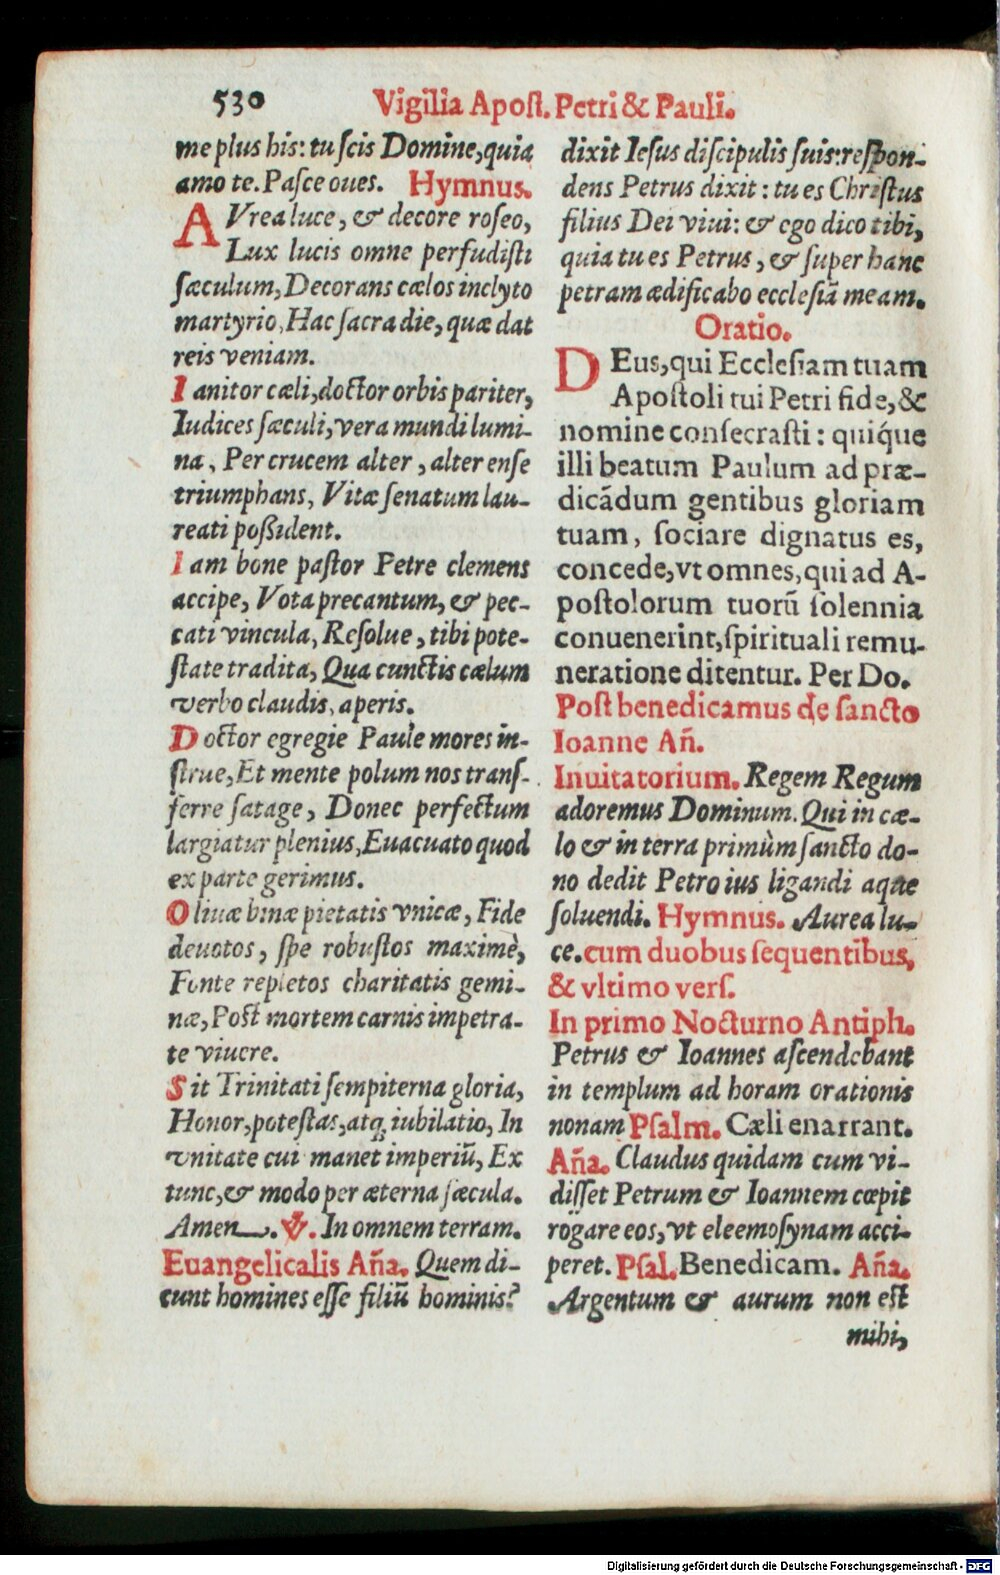 530 Vigilia Apoſt. Petri & Pauli.
me plus his: tu ſcis Domine, quia
amo te. Paſce oues. Hymnus.
AVrea luce, & decore roſeo,
Lux lucis omne perfudiſti
ſæculum, Decorans cælos inclyto
martyrio, Hac ſacra die, quæ dat
reis veniam.
Ianitor cæli, doctor orbis pariter,
Iudices ſæculi, vera mundi lumi-
na, Per crucem alter, alter enſe
triumphans, Vitæ ſenatum lau-
reati poßident.
Iam bone paſtor Petre clemens
accipe, Vota precantum, & pec-
cati vincula, Reſolue, tibi pote-
ſtate tradita, Qua cunctis cælum
verbo claudis, aperis.
Doctor egregie Paule mores in-
ſtrue, Et mente polum nos tranſ-
ferre ſatage, Donec perfectum
largiatur plenius, Euacuato quod
ex parte gerimus.
Oliuæ binæ pietatis vnicæ, Fide
deuotos, ſpe robuſtos maximè,
Fonte repletos charitatis gemi-
næ, Poſt mortem carnis impetra-
te viuere.
Sit Trinitati ſempiterna gloria,
Honor, poteſtas, atq; iubilatio, In
vnitate cui manet imperiũ, Ex
tunc, & modo per æterna ſæcula.
Amen. ℣. In omnem terram.
Euangelicalis Aña. Quem di-
cunt homines eſſe filiũ hominis?
dixit Ieſus diſcipulis ſuis: reſpon-
dens Petrus dixit: tu es Chriſtus
filius Dei viui: & ego dico tibi,
quia tu es Petrus, & ſuper hanc
petram ædificabo eccleſiã meam.
Oratio.
DEus, qui Eccleſiam tuam
Apoſtoli tui Petri fide, &
nomine conſecraſti: quiq́ue
illi beatum Paulum ad præ-
dicãdum gentibus gloriam
tuam, ſociare dignatus es,
concede, vt omnes, qui ad A-
poſtolorum tuorũ ſolennia
conuenerint, ſpirituali remu-
neratione ditentur. Per Do.
Poſt benedicamus de ſancto
Ioanne Añ.
Inuitatorium. Regem Regum
adoremus Dominum. Qui in cæ-
lo & in terra primùm ſancto do-
no dedit Petro ius ligandi aque
ſoluendi. Hymnus. Aurea lu-
ce. cum duobus ſequentibus,
& vltimo verſ.
In primo Nocturno Antiph.
Petrus & Ioannes aſcendebant
in templum ad horam orationis
nonam Pſalm. Cæli enarrant.
Aña. Claudus quidam cum vi-
diſſet Petrum & Ioannem cœpit
rogare eos, vt eleemoſynam acci-
peret. Pſal. Benedicam. Aña.
Argentum & aurum non eſt
mihi,
Digitalisierung gefördert durch die Deutsche Forschungsgemeinschaft - DFG